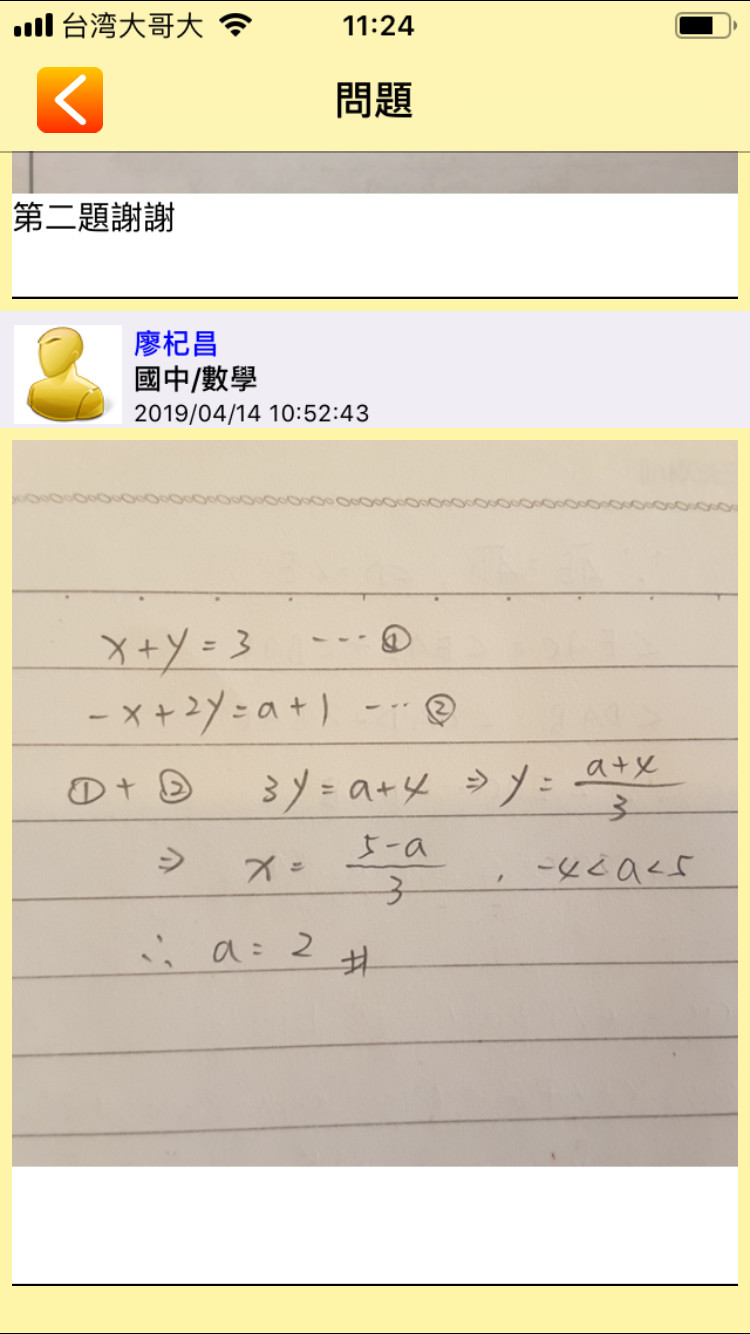 台湾大哥大 11:24
問題
第二題謝謝
廖杞昌
國中/數學
2019/04/14 10:52:43
x+y=3 ---①
-x+2y=a+1 ---②
①+② 3y=a+4 ⇒ y=(a+4)/3
⇒ x=(5-a)/3 , -4<a<5
∴ a=2 #